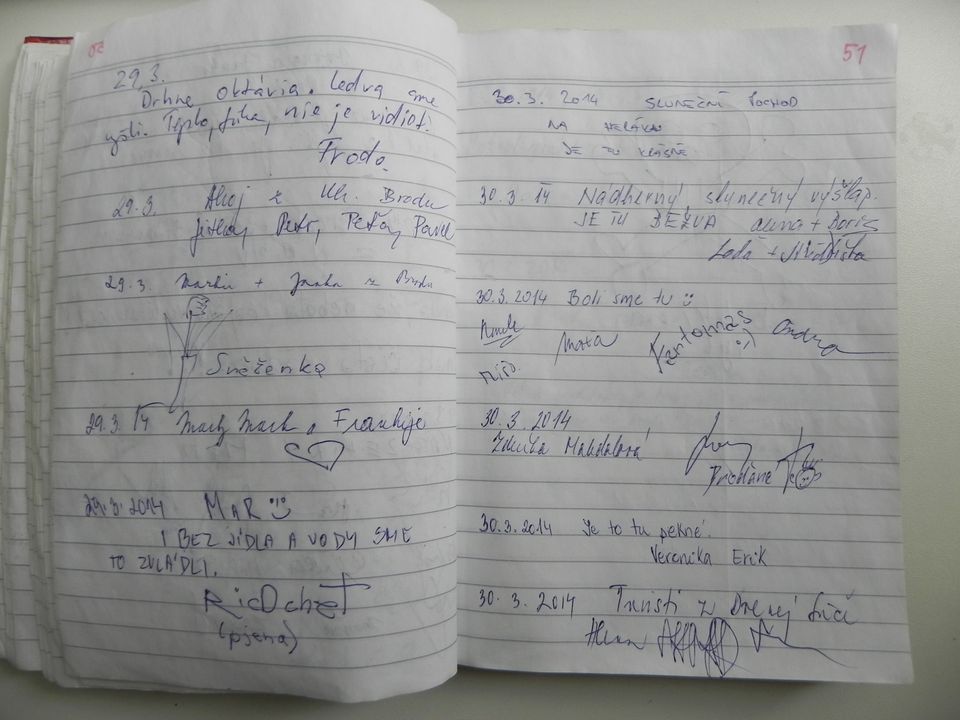 50
29.3.
Drhne oktávia. Ledva sme
vyšli. Teplo, fúka, nie je vidieť.
Frodo.
29.3. Ahoj z Uh. Brodu
Jitka, Petr, Péťa, Pavel
29.3. + Janka z Brodu
Sněženka
29.3. 14 Marky Mark a Frankije
29.3.2014 MAR
I BEZ JÍDLA A VODY SME
TO ZVLÁDLI.
RicOcheT
(pjena)
51
30.3. 2014 SLUNEČNÍ POCHOD
NA
JE TU KRÁSNĚ
30.3. 14 Nádherný, slunečný výšlap.
JE TU BEZVA alena + Boris
Lada +
30.3.2014 Boli sme tu
Maťa Fantomas :) Ondra
Miro.
30.3.2014
Zdenka
Broďané
30.3.2014 Je to tu pekné.
Veronika Erik
30.3.2014 Turisti z Drnej